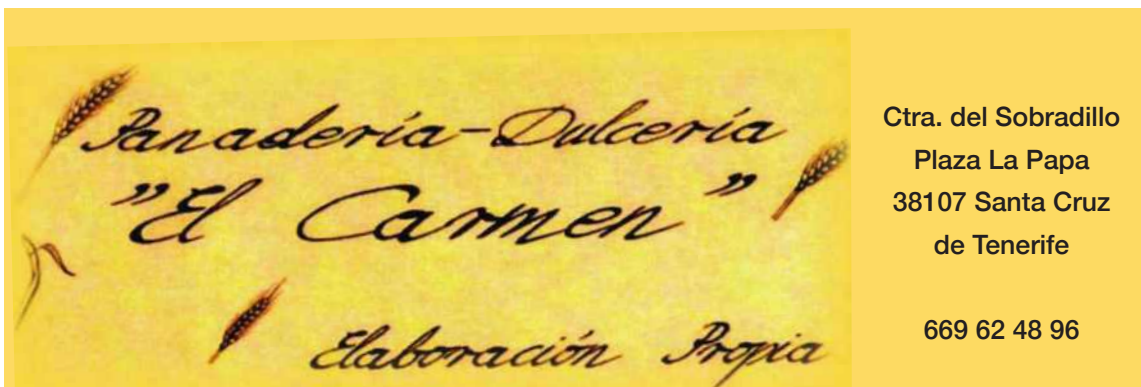 Panadería-Dulcería
"El Carmen"
Elaboración Propia
Ctra. del Sobradillo
Plaza La Papa
38107 Santa Cruz
de Tenerife
669 62 48 96